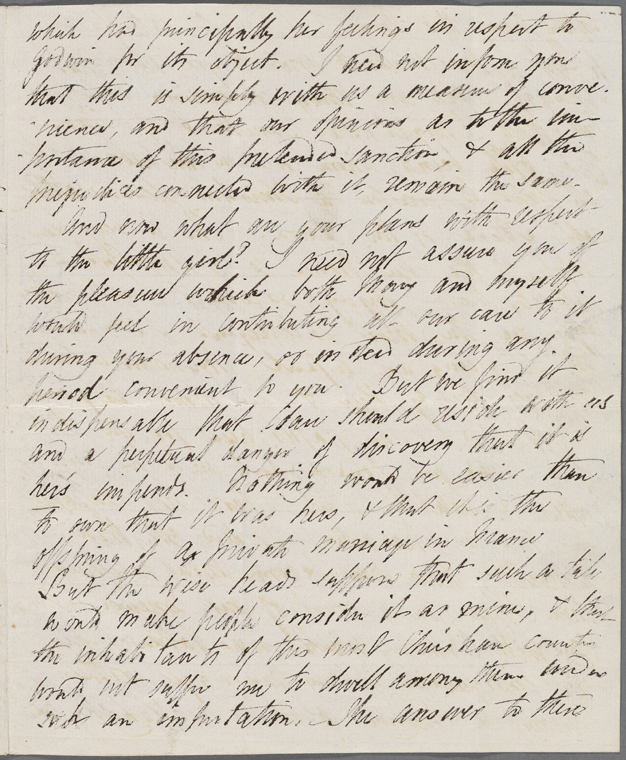 which had principally her feelings in respect to
Godwin for its object. I need not inform you
that this is simply with us a measure of conve-
-nience, and that our opinions as to the im-
portance of this pretended sanction, & all the
prejudices connected with it, remain the same.
And now what are your plans with respect
to the little girl? I need not assure you of
the pleasure which both Mary and myself
would feel in contributing all our care to it
during your absence, or indeed during any
period convenient to you. But we find it
indispensable that Clare should reside with us
and a perpetual danger of discovery that it is
hers impends. Nothing would be easier than
to own that it was hers, & that it is the
offspring of a private marriage in France
But the wise heads suppose that such a tale
would make people consider it as mine, & that
the inhabitants of this most Christian country
would not suffer me to dwell among them under
such an imputation. The answer to these